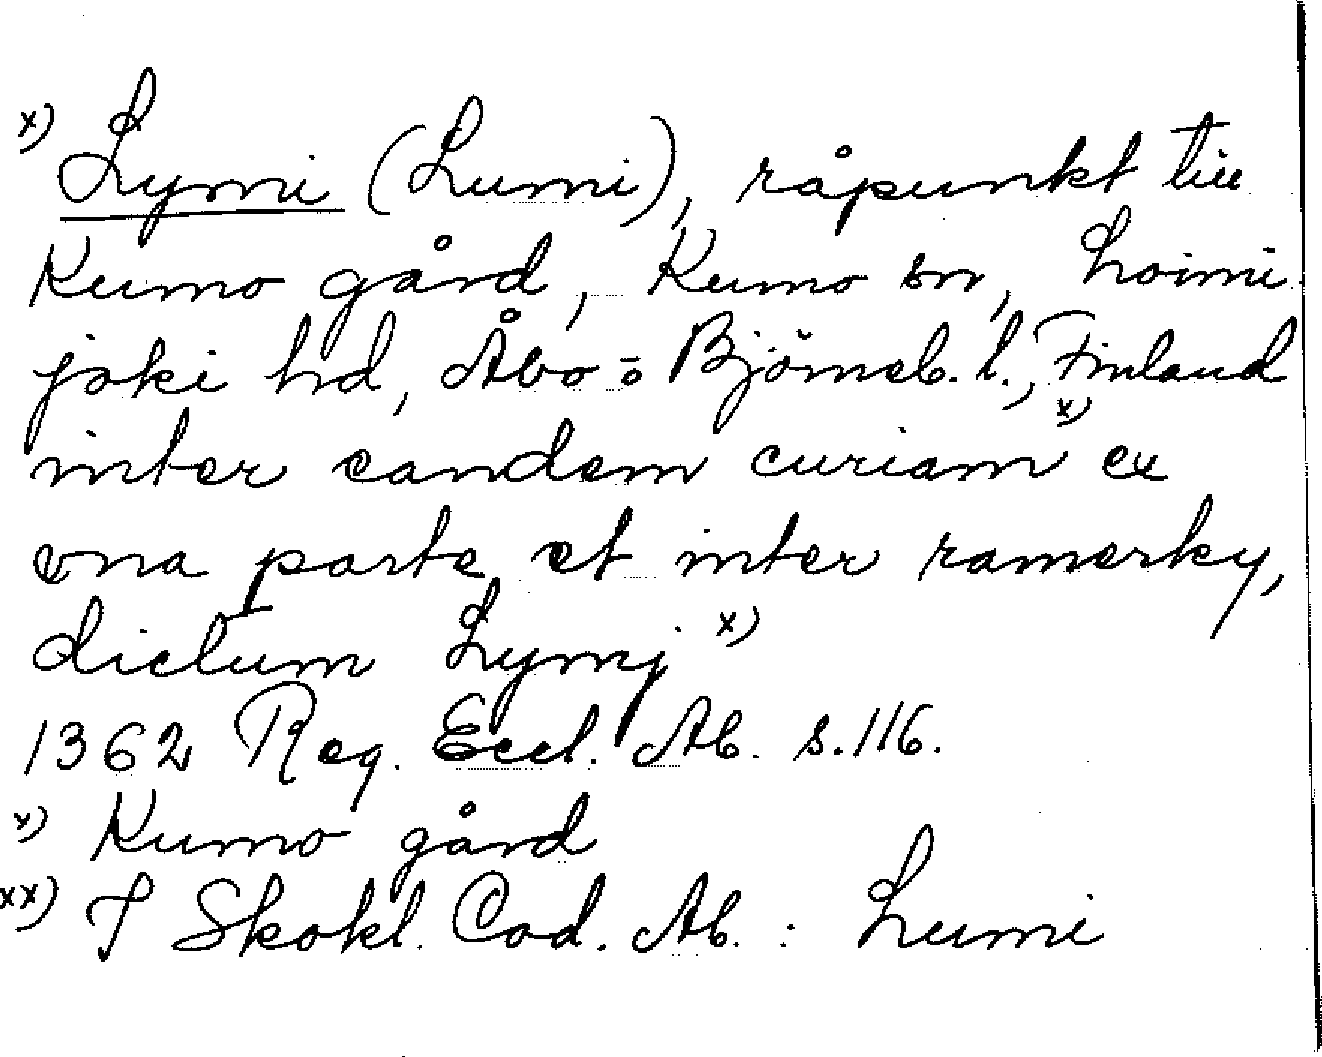 x) Lymi (Lumi), råpunkt till
Kumo gård, Kumo sn, Loimi-
joki hd, Åbo- o Björneb. l., Finland
inter eandem curiam x) ex
vna parte et inter ramerky,
dictum Lymj x)
1362 Reg. Eccl. Ab. s. 116.
x) Kumo gård
xx) I Skokl. Cod. Ab. : Lumi